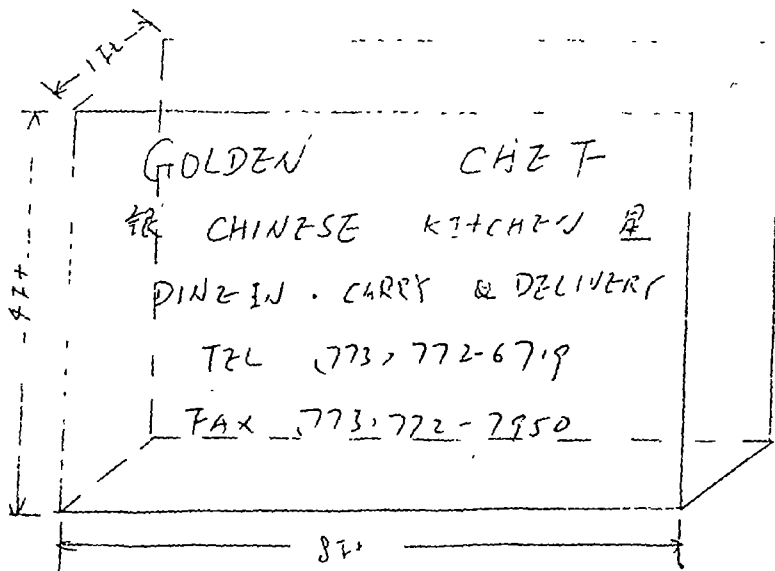 1 Ft
GOLDEN CHEF
銀 CHINESE KITCHEN 星
DINE IN . CARRY & DELIVERY
4 Ft
TEL (773) 772-6719
FAX (773) 772-7950
8 Ft